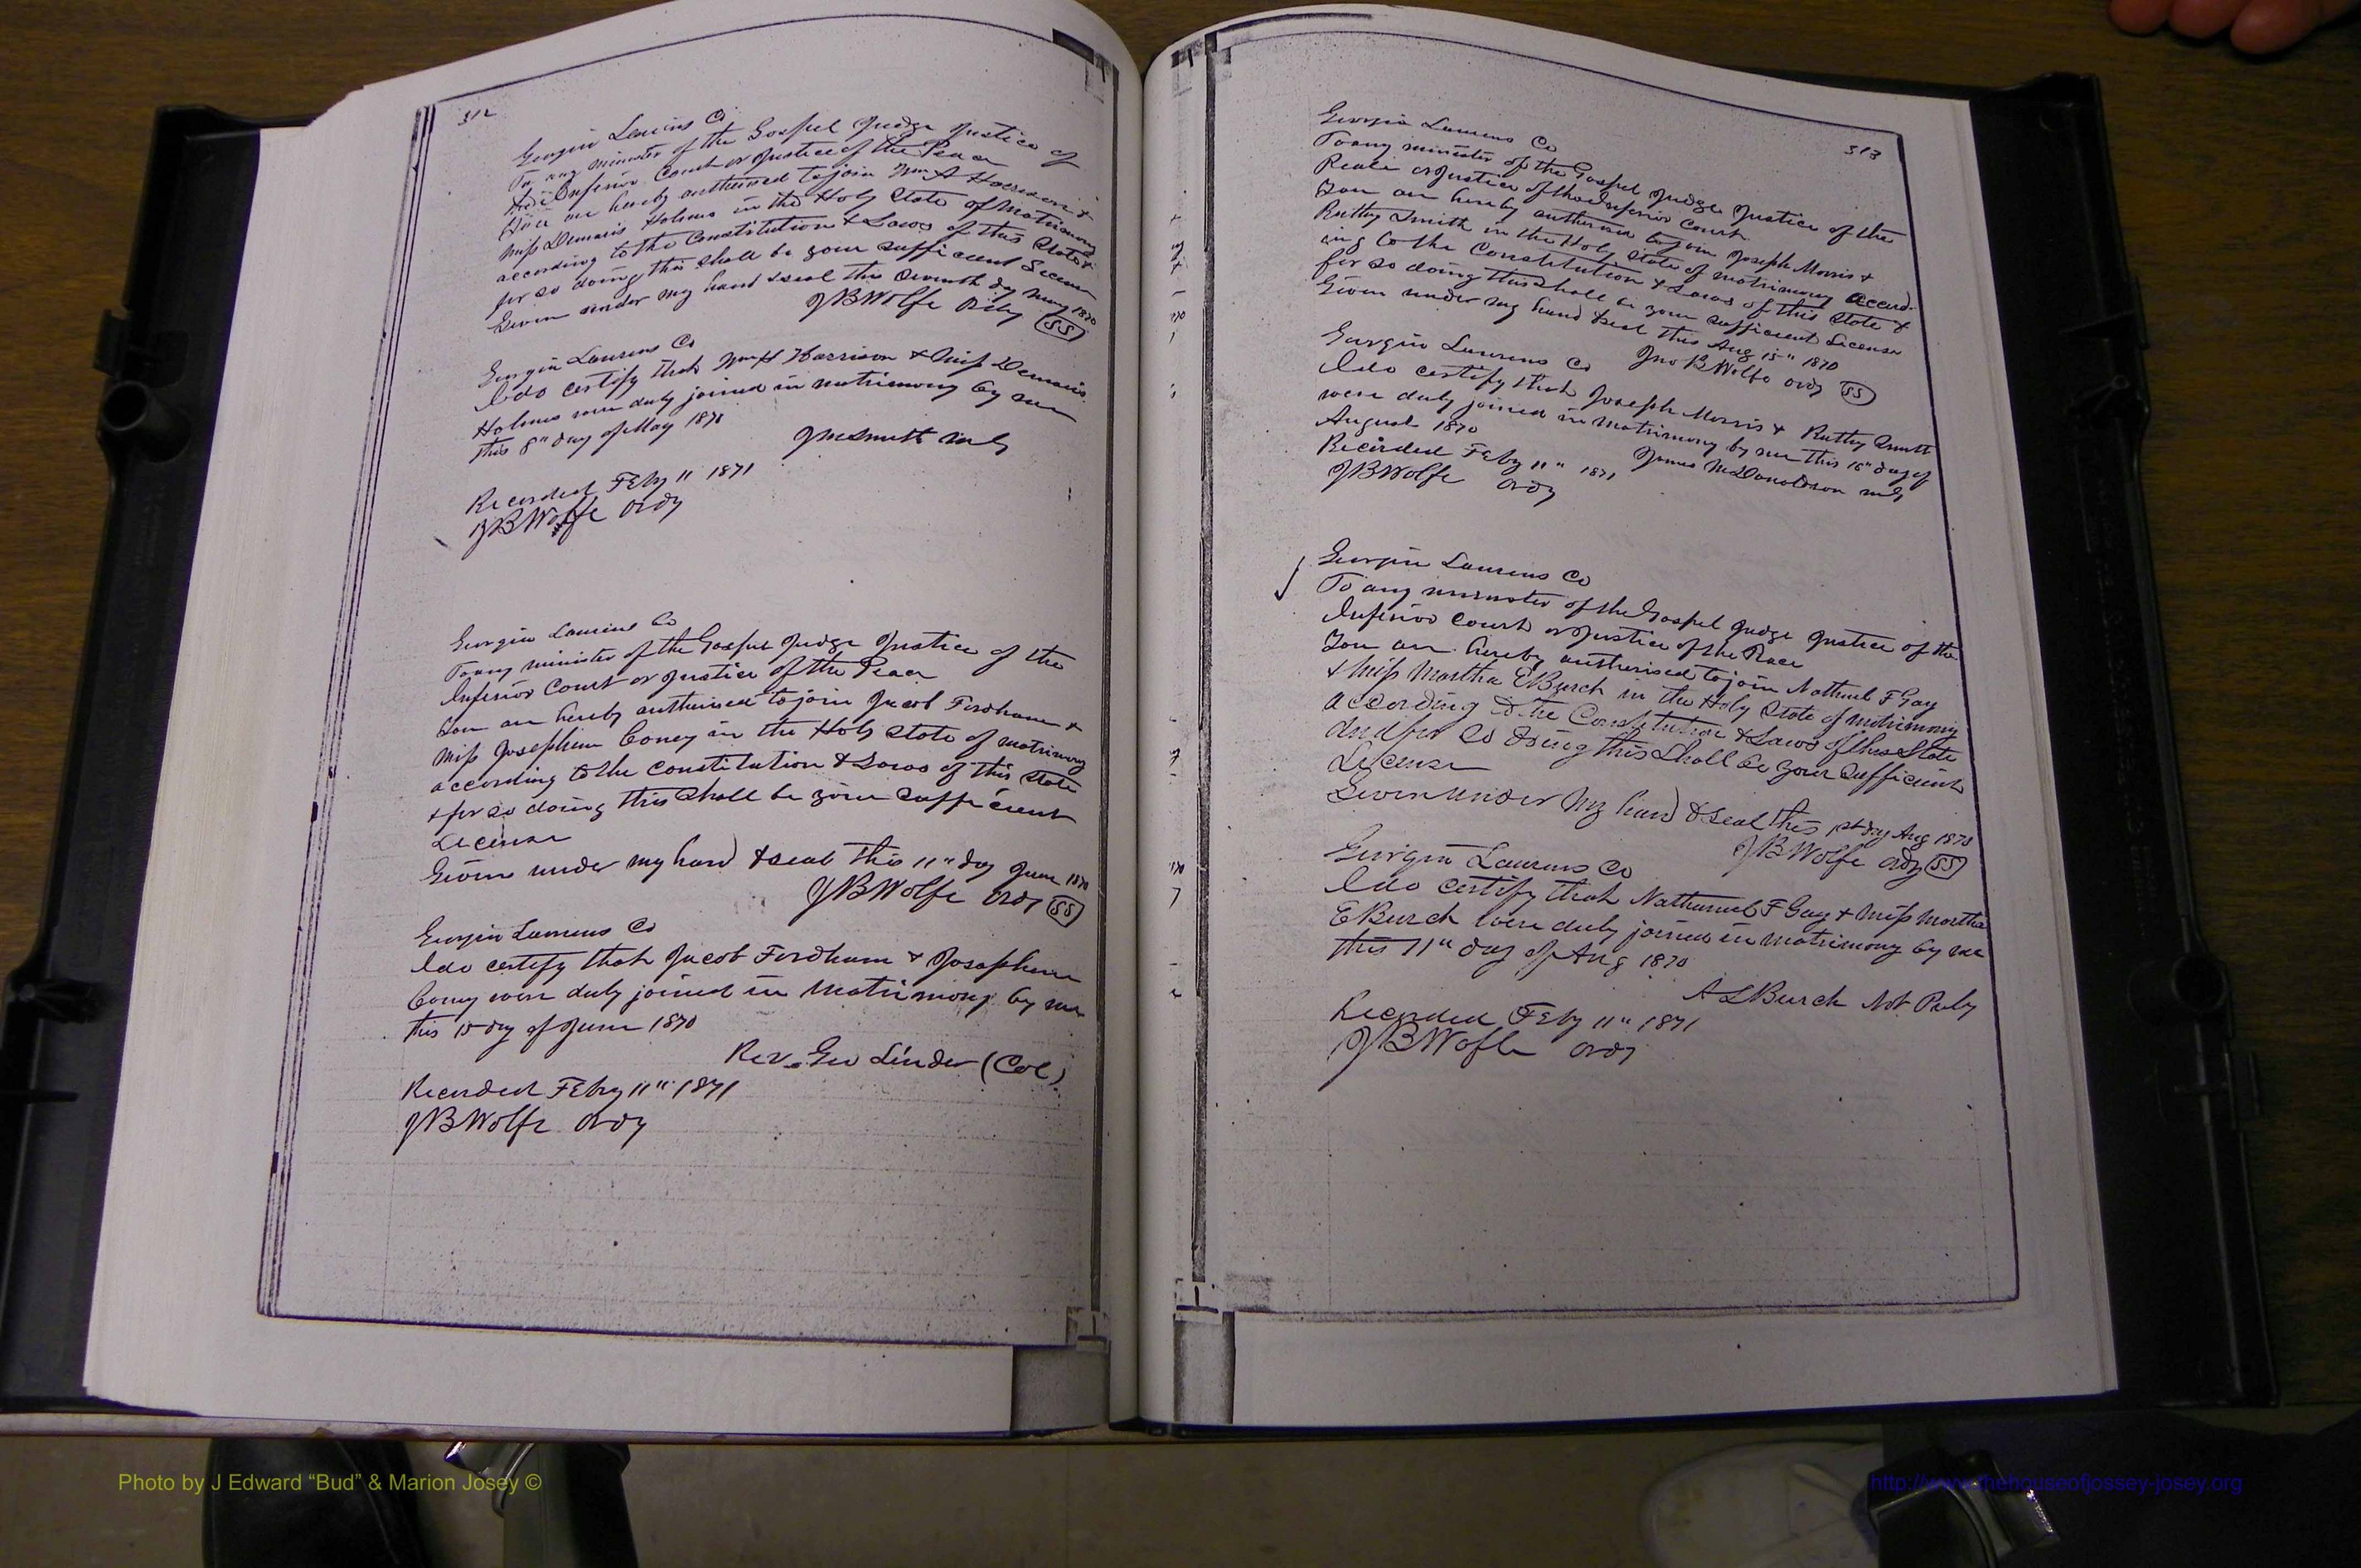 312
Georgia Laurens Co
To any minister of the Gospel Judge Justice of
the Inferior Court or Justice of the Peace
You are hereby authorised to join Wm A Harrison &
Miss Demaris Holmes in the Holy State of Matrimony
according to the Constitution & Laws of this State &
for so doing this shall be your sufficient License
Given under my hand & seal this Seventh day May 1870
JBWolfe Ordy (SS)
Georgia Laurens Co
I do certify that Wm H Harrison & Miss Demaris
Holmes were duly joined in matrimony by me
this 8" day of May 1870
Recorded Feby 11 1871
JBWolfe Ordy
Georgia Laurens Co
To any minister of the Gospel Judge Justice of the
Inferior Court or Justice of the Peace
You are hereby authorised to join Jacob Fordham &
Miss Josephine Coney in the Holy State of matrimony
according to the Constitution & Laws of this State
& for so doing this Shall be your Sufficient
License
Given under my hand & seal this 11" day June 1870
JBWolfe Ordy (SS)
Georgia Laurens Co
I do certify that Jacob Fordham & Josephine
Coney were duly joined in Matrimony by me
this day of June 1870
Rev. Geo Linder (Col)
Recorded Feby 11" 1871
JBWolfe Ordy
313
Georgia Laurens Co
To any minister of the Gospel Judge Justice of the
Peace or Justice of the Inferior Court
You are hereby authorised to join Joseph Morris &
Ruthy Smith in the Holy State of matrimony accord-
ing to the Constitution & Laws of this State &
for so doing this shall be your sufficient License
Given under my hand & seal this Aug 15" 1870
Jno B Wolfe Ordy (SS)
Georgia Laurens Co
I do certify that Joseph Morris & Ruthy Smith
were duly joined in matrimony by me this day of
August 1870
James McDonaldson
Recorded Feby 11" 1871
JBWolfe Ordy
Georgia Laurens Co
To any minister of the Gospel Judge Justice of the
Inferior Court or Justice of the Peace
You are hereby authorised to join Nathanel F Gay
& Miss Martha E Burch in the Holy State of matrimony
according to the Constitution & Laws of this State
and for so doing this Shall be your Sufficient
License
Given under My hand & seal this 1st day Aug 1870
JBWolfe Ordy (SS)
Georgia Laurens Co
I do certify that Nathanuel F Gay & Miss Martha
E Burch were duly joined in matrimony by me
this 11" day of Aug 1870
A L Burch Not Puby
Recorded Feby 11" 1871
JBWolfe Ordy
Photo by J Edward “Bud” & Marion Josey ©
http://www.thehouseofjossey-josey.org